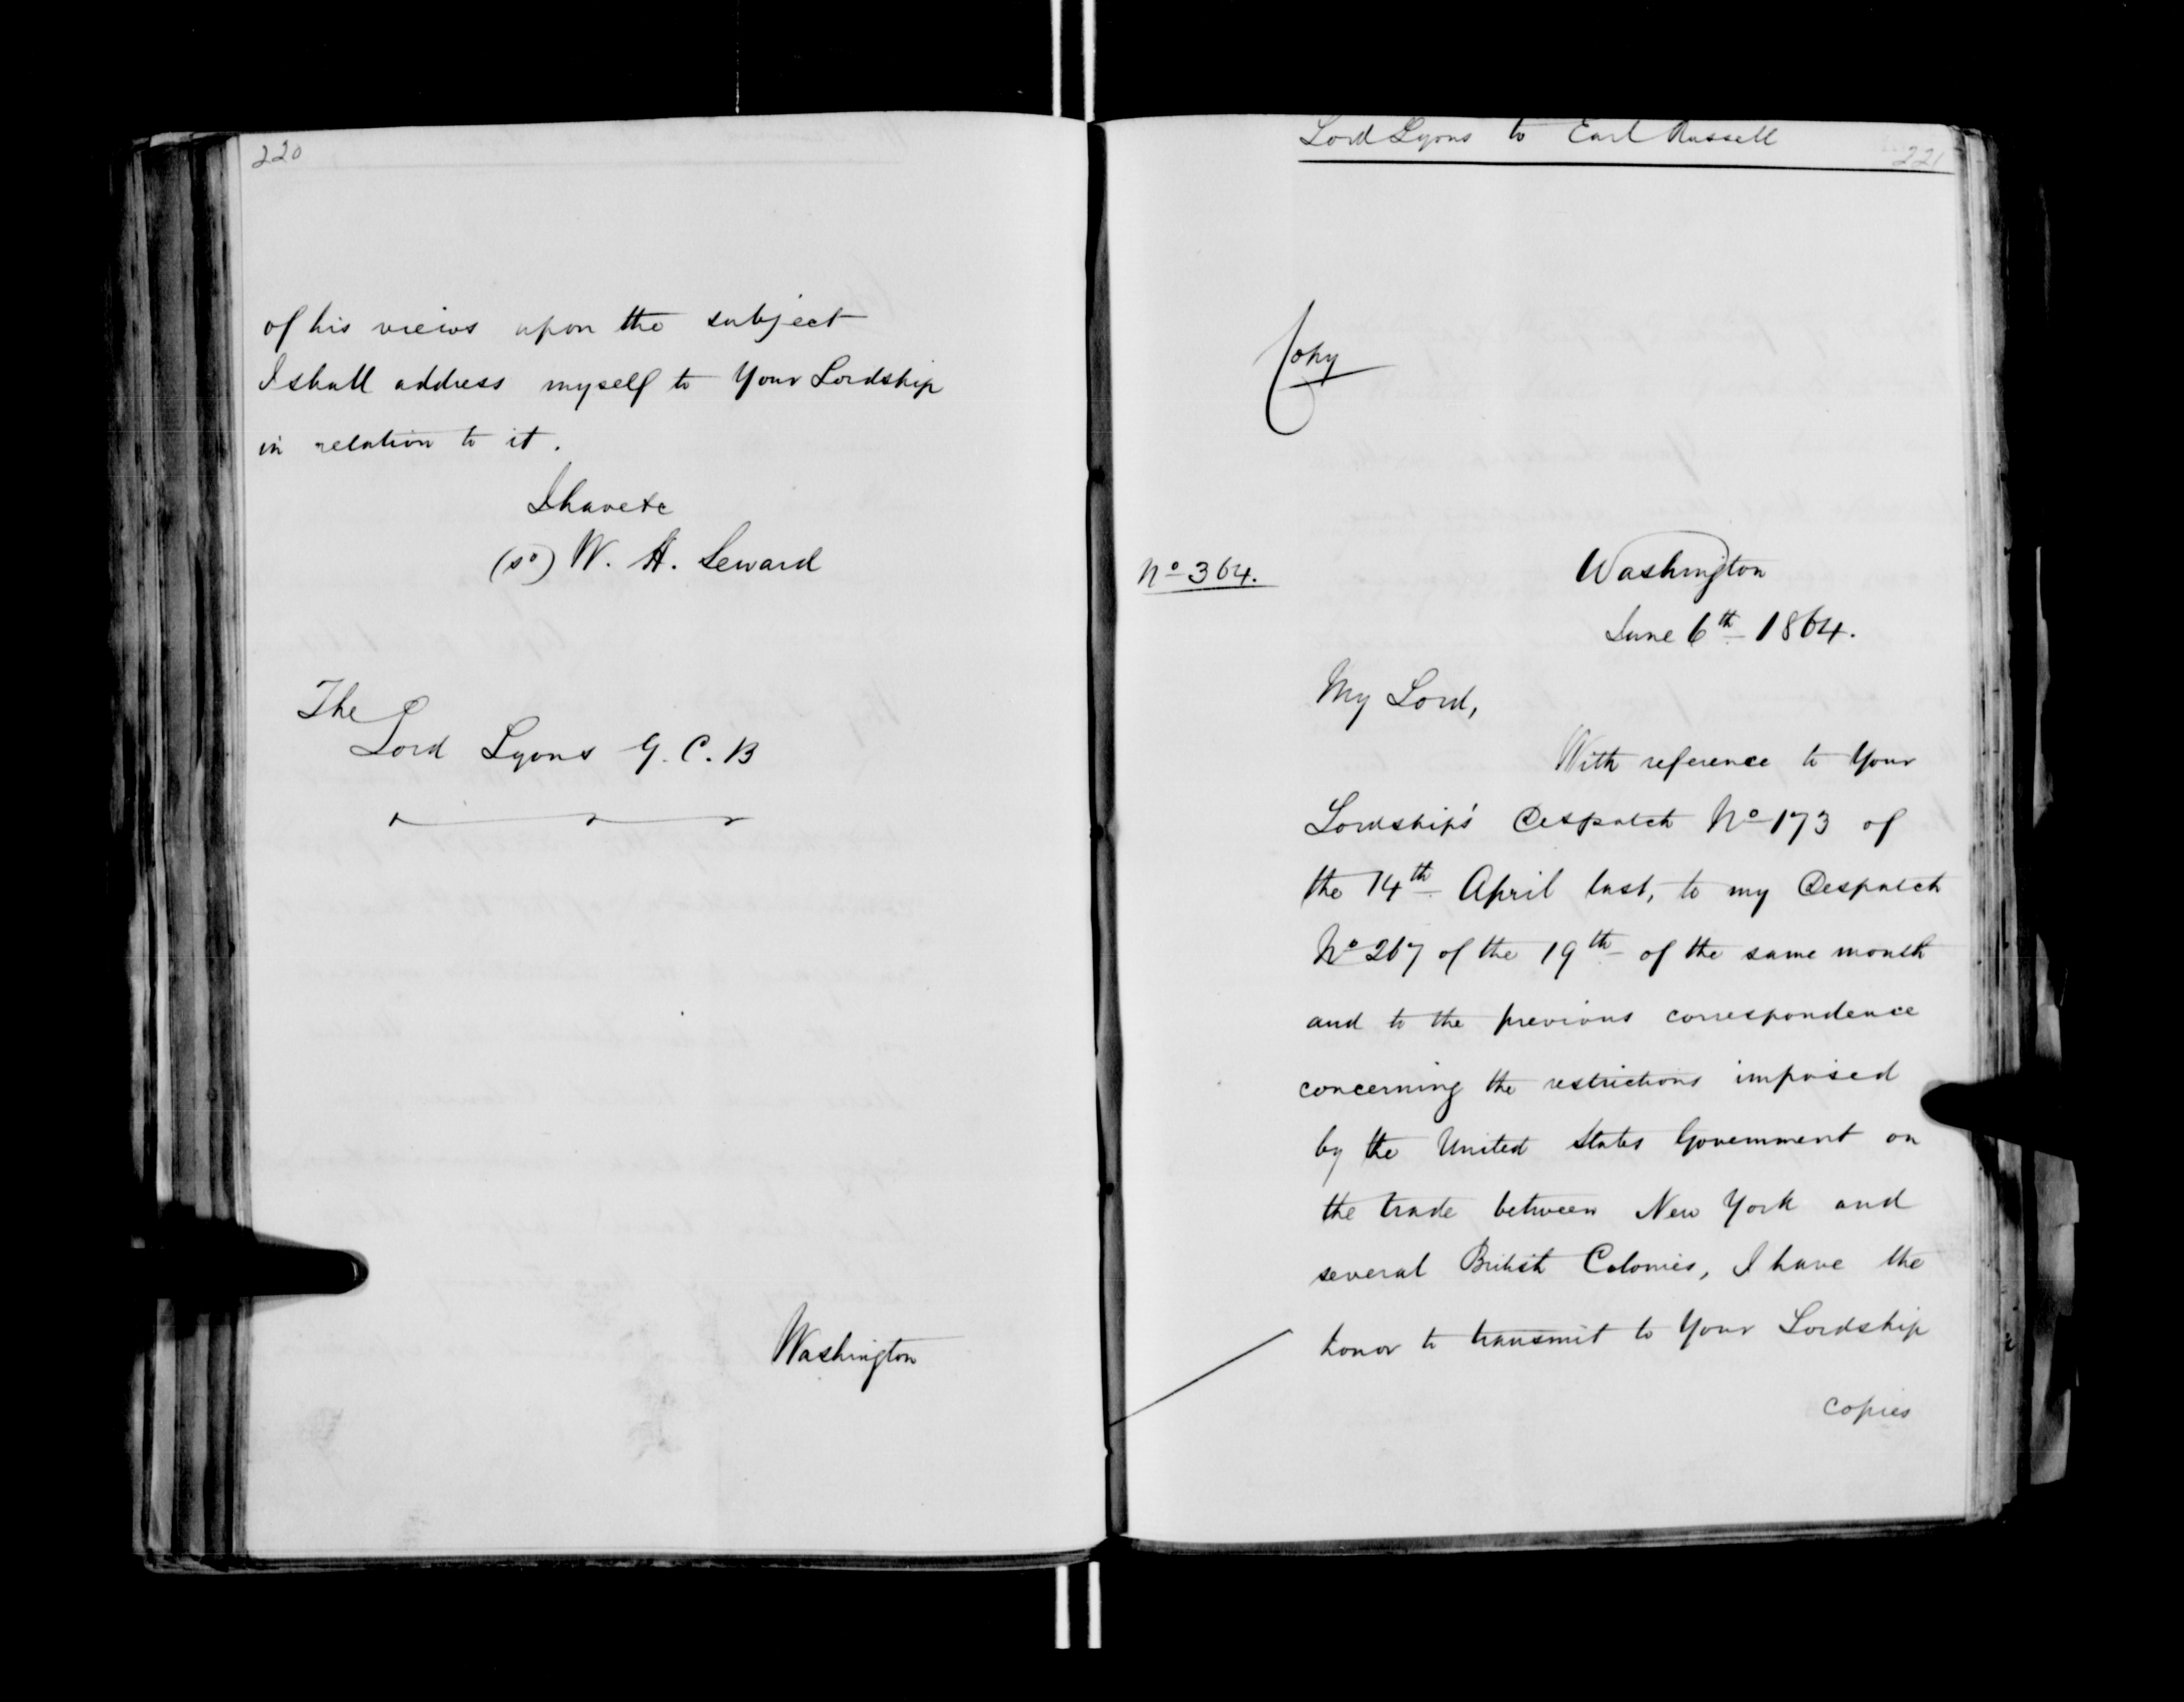 220
of his views upon the subject
I shall address myself to Your Lordship
in relation to it.
I have &c
(sd) W. H. Seward
The
Lord Lyons G. C. B
Washington
Lord Lyons to Earl Russell
221
Copy
No 364.
Washington
June 6th 1864.
My Lord,
With reference to Your
Lordship's Despatch No 173 of
the 14th April last, to my Despatch
No 267 of the 19th of the same month
and to the previous correspondence
concerning the restrictions imposed
by the United States Government on
the trade between New York and
several British Colonies, I have the
honor to transmit to Your Lordship
copies